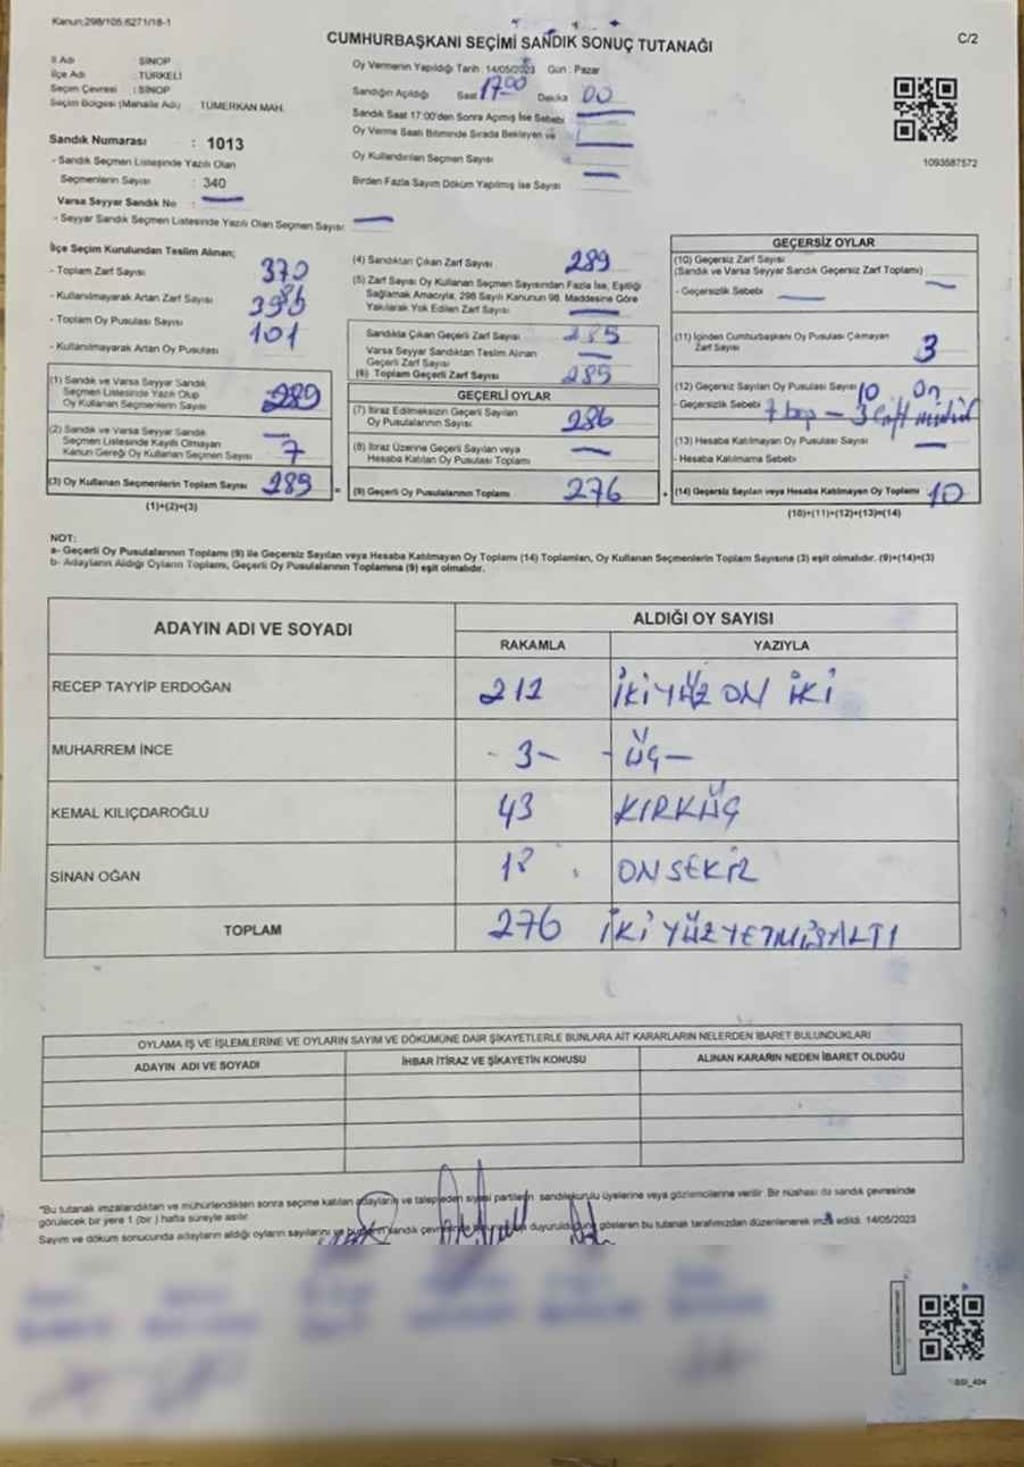 Kanun:298/105.6271/18-1
CUMHURBAŞKANI SEÇİMİ SANDIK SONUÇ TUTANAĞI
C/2
İl Adı : SİNOP
İlçe Adı : TÜRKELİ
Seçim Çevresi : SİNOP
Seçim Bölgesi (Mahalle Adı) TÜMERKAN MAH.
Oy Vermenin Yapıldığı Tarih : 14/05/2023 Gün : Pazar
Sandığın Açıldığı Saat 17:00 Dakika 00
Sandık Saat 17:00'den Sonra Açılmış İse Sebebi
Oy Verme Saati Bitiminde Sırada Bekleyen ve
Oy Kullandırılan Seçmen Sayısı
Birden Fazla Sayım Döküm Yapılmış İse Sayısı
1093587572
Sandık Numarası : 1013
- Sandık Seçmen Listesinde Yazılı Olan
Seçmenlerin Sayısı : 340
Varsa Seyyar Sandık No : —
- Seyyar Sandık Seçmen Listesinde Yazılı Olan Seçmen Sayısı: —
İlçe Seçim Kurulundan Teslim Alınan;
- Toplam Zarf Sayısı 370
- Kullanılmayarak Artan Zarf Sayısı
- Toplam Oy Pusulası Sayısı 101
- Kullanılmayarak Artan Oy Pusulası
(1) Sandık ve Varsa Seyyar Sandık
Seçmen Listesinde Yazılı Olup
Oy Kullanan Seçmenlerin Sayısı 289
(2) Sandık ve Varsa Seyyar Sandık
Seçmen Listesinde Kayıtlı Olmayan
Kanun Gereği Oy Kullanan Seçmen Sayısı 7
(3) Oy Kullanan Seçmenlerin Toplam Sayısı 289
(1)+(2)=(3)
(4) Sandıktan Çıkan Zarf Sayısı 289
(5) Zarf Sayısı Oy Kullanan Seçmen Sayısından Fazla İse, Eşitliği
Sağlamak Amacıyla, 298 Sayılı Kanunun 98. Maddesine Göre
Yakılarak Yok Edilen Zarf Sayısı —
Sandıkta Çıkan Geçerli Zarf Sayısı
Varsa Seyyar Sandıktan Teslim Alınan
Geçerli Zarf Sayısı —
(6) Toplam Geçerli Zarf Sayısı 289
GEÇERLİ OYLAR
(7) İtiraz Edilmeksizin Geçerli Sayılan
Oy Pusulalarının Sayısı 286
(8) İtiraz Üzerine Geçerli Sayılan veya
Hesaba Katılan Oy Pusulası Toplamı —
(9) Geçerli Oy Pusulalarının Toplamı 276
GEÇERSİZ OYLAR
(10) Geçersiz Zarf Sayısı
(Sandık ve Varsa Seyyar Sandık Geçersiz Zarf Toplamı) —
- Geçersizlik Sebebi —
(11) İçinden Cumhurbaşkanı Oy Pusulası Çıkmayan
Zarf Sayısı 3
(12) Geçersiz Sayılan Oy Pusulası Sayısı 10 On
- Geçersizlik Sebebi 7 boş — 3 çift mühür
(13) Hesaba Katılmayan Oy Pusulası Sayısı —
- Hesaba Katılmama Sebebi
(14) Geçersiz Sayılan veya Hesaba Katılmayan Oy Toplamı 10
(10)+(11)+(12)+(13)=(14)
NOT:
a- Geçerli Oy Pusulalarının Toplamı (9) ile Geçersiz Sayılan veya Hesaba Katılmayan Oy Toplamı (14) Toplamları, Oy Kullanan Seçmenlerin Toplam Sayısına (3) eşit olmalıdır. (9)+(14)=(3)
b- Adayların Aldığı Oyların Toplamı, Geçerli Oy Pusulalarının Toplamına (9) eşit olmalıdır.
ADAYIN ADI VE SOYADI
ALDIĞI OY SAYISI
RAKAMLA YAZIYLA
RECEP TAYYİP ERDOĞAN 212 İKİYÜZ ON İKİ
MUHARREM İNCE - 3 - - ÜÇ —
KEMAL KILIÇDAROĞLU 43 KIRKÜÇ
SİNAN OĞAN 18 ONSEKİZ
TOPLAM 276 İKİ YÜZYETMİŞALTI
OYLAMA İŞ VE İŞLEMLERİNE VE OYLARIN SAYIM VE DÖKÜMÜNE DAİR ŞİKAYETLERLE BUNLARA AİT KARARLARIN NELERDEN İBARET BULUNDUKLARI
ADAYIN ADI VE SOYADI İHBAR İTİRAZ VE ŞİKAYETİN KONUSU ALINAN KARARIN NEDEN İBARET OLDUĞU
"Bu tutanak imzalandıktan ve mühürlendikten sonra seçime katılan adayların ve talep eden siyasi partilerin sandık kurulu üyelerine veya gözlemcilerine verilir. Bir nüshası da sandık çevresinde
görülecek bir yere 1 (bir) hafta süreyle asılır.
Sayım ve döküm sonucunda adayların aldığı oyların sayılarını ve sandık duyurulduğunu gösteren bu tutanak tarafımızdan düzenlenerek imza edildi. 14/05/2023